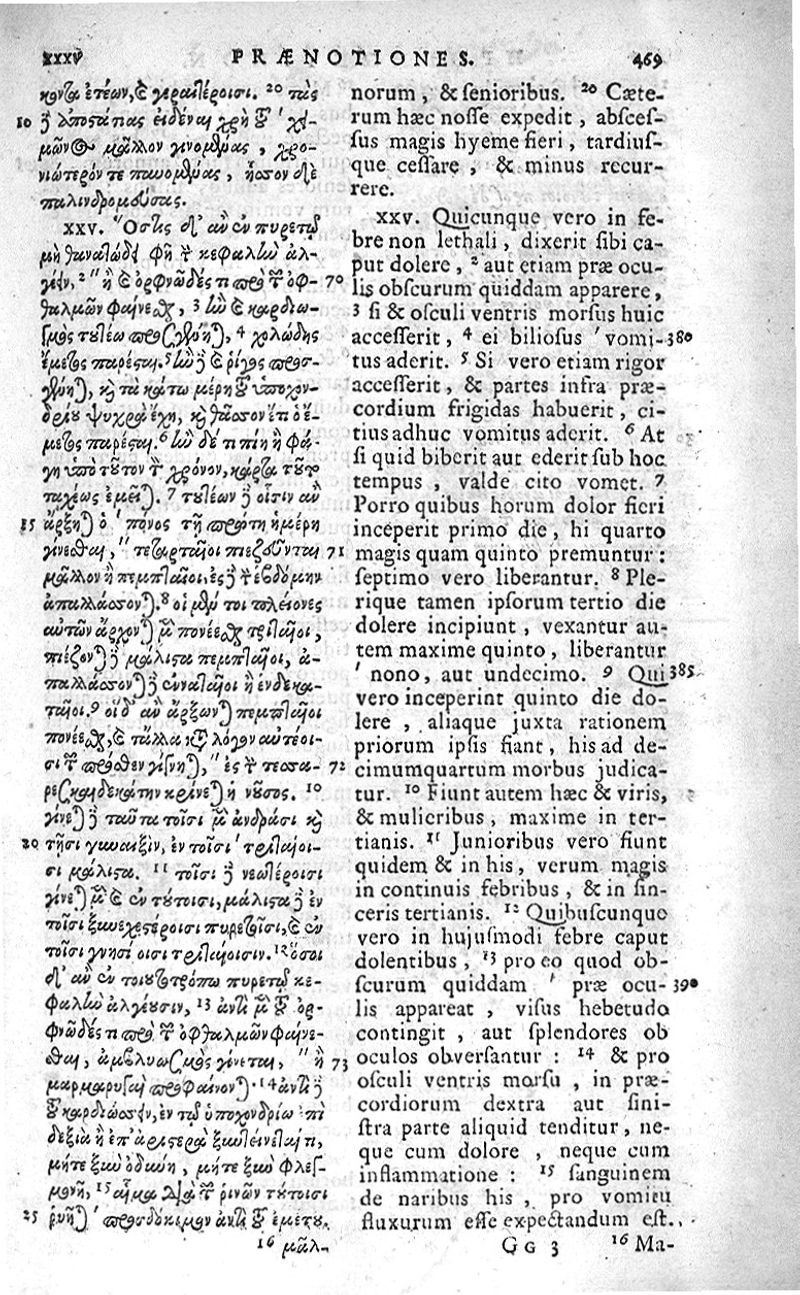 XXXV PRÆNOTIONES. 469
κοντα ἐτέων, & γεραιτέροισι. 20 τὰς
10 δὲ ἀποστάσιας εἰδέναι χρὴ τοῦ ' χει-
μῶνος μᾶλλον γινομένας, χρο-
νιώτερόν τε παυομένας, ἧσσον δὲ
παλινδρομούσας.
XXV. "Ὅστις δ' ἂν ἐν πυρετῷ
μὴ θανατώδει φῇ τὴν κεφαλὴν ἀλ-
γέειν, 2 " ἢ καὶ ὀρφνῶδές τι πρὸ τῶν ὀφ- 70
θαλμῶν φαίνεσθαι, 3 ἢν καὶ καρδιω-
γμὸς τουτέῳ προσγένηται, 4 χολώδης
ἔμετος παρέσται. 5 ἢν δὲ καὶ ῥῖγος προσ-
γένηται, καὶ τὰ κάτω μέρη τοῦ ὑποχον-
δρίου ψυχρὰ ἔχῃ, καὶ θᾶσσον ἔτι ὁ ἔ-
μετος παρέσται. 6 ἢν δέ τι πίῃ ἢ φά-
γῃ ὑπὸ τοῦτον τὸν χρόνον, κάρτα
ταχέως ἐμεῖται. 7 τουτέων δὲ οἷσιν ἂν
15 ἄρξηται ὁ ' πόνος τῇ πρώτῃ ἡμέρῃ
γίνεσθαι, " τεταρταῖοι πιεζοῦνται 71
μᾶλλον ἢ πεμπταῖοι, ἐς δὲ τὴν ἑβδόμην
ἀπαλλάσσονται. 8 οἱ μέν τοι πλείονες
αὐτῶν ἄρχονται μὲν πονέεσθαι τριταῖοι,
πιέζονται δὲ μάλιστα πεμπταῖοι, ἀ-
παλλάσσονται δὲ ἐναταῖοι ἢ ἑνδεκα-
ταῖοι. 9 οἳ δ' ἂν ἄρξωνται πεμπταῖοι
πονέεσθαι, καὶ τἄλλα κατὰ λόγον αὐτέοι-
σι τῶν πρόσθεν γίνηται, " ἐς τὴν τεσσα- 72
ρεσκαιδεκάτην κρίνεται ἡ νοῦσος. 10
γίνεται δὲ ταῦτα τοῖσι μὲν ἀνδράσι καὶ
20 τῇσι γυναιξὶν, ἐν τοῖσι ' τριταίοι-
σι μάλιστα. 11 τοῖσι δὲ νεωτέροισι
γίνεται μὲν καὶ ἐν τούτοισι, μάλιστα δὲ ἐν
τοῖσι ξυνεχεστέροισι πυρετοῖσι, καὶ ἐν
τοῖσι γνησίοισι τριταίοισιν. 12 ὅσοι
δ' ἂν ἐν τοιουτοτρόπῳ πυρετῷ κε-
φαλὴν ἀλγέουσιν, 13 ἀντὶ μὲν τοῦ ὀρ-
φνῶδές τι πρὸ τῶν ὀφθαλμῶν φαίνε-
σθαι, ἀμβλυωγμὸς γίνεται, " ἢ 73
μαρμαρυγαὶ προφαίνονται. 14 ἀντὶ δὲ
τοῦ καρδιώσσειν, ἐν τῷ ὑποχονδρίῳ ἐπὶ
δεξιὰ ἢ ἐπ' ἀριστερὰ ξυντείνεταί τι,
μήτε ξὺν ὀδύνῃ, μήτε ξὺν φλεγ-
μονῇ, 15 αἷμα διὰ τῶν ῥινῶν τούτοισι
25 ῥυῆναι ' προσδόκιμον ἀντὶ τοῦ ἐμέτου.
16 μᾶλ-
norum, & ſenioribus. 20 Cæte-
rum hæc noſſe expedit, abſceſ-
ſus magis hyeme fieri, tardiuſ-
que ceſſare, & minus recur-
rere.
XXV. Quicunque vero in fe-
bre non lethali, dixerit ſibi ca-
put dolere, 2 aut etiam præ ocu-
lis obſcurum quiddam apparere,
3 ſi & oſculi ventris morſus huic
acceſſerit, 4 ei bilioſus ' vomi- 380
tus aderit. 5 Si vero etiam rigor
acceſſerit, & partes infra præ-
cordium frigidas habuerit, ci-
tius adhuc vomitus aderit. 6 At
ſi quid biberit aut ederit ſub hoc
tempus, valde cito vomet. 7
Porro quibus horum dolor fieri
inceperit primo die, hi quarto
magis quam quinto premuntur:
ſeptimo vero liberantur. 8 Ple-
rique tamen ipſorum tertio die
dolere incipiunt, vexantur au-
tem maxime quinto, liberantur
' nono, aut undecimo. 9 Qui 385
vero inceperint quinto die do-
lere, aliaque juxta rationem
priorum ipſis fiant, his ad de-
cimumquartum morbus judica-
tur. 10 Fiunt autem hæc & viris,
& mulieribus, maxime in ter-
tianis. 11 Junioribus vero fiunt
quidem & in his, verum magis
in continuis febribus, & in ſin-
ceris tertianis. 12 Quibuſcunque
vero in hujuſmodi febre caput
dolentibus, 13 pro eo quod ob-
ſcurum quiddam ' præ ocu- 390
lis appareat, viſus hebetudo
contingit, aut ſplendores ob
oculos obverſantur: 14 & pro
oſculi ventris morſu, in præ-
cordiorum dextra aut ſini-
ſtra parte aliquid tenditur, ne-
que cum dolore, neque cum
inflammatione: 15 ſanguinem
de naribus his, pro vomitu
fluxurum eſſe expectandum eſt.
GG 3 16 Ma-